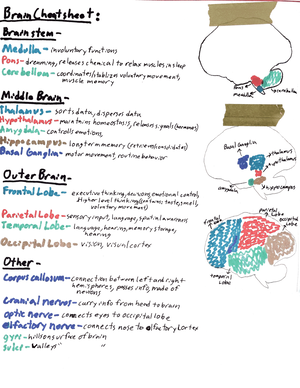 Brain Cheatsheet:
Brainstem-
Medulla - involuntary functions
Pons- dreaming, releases chemical to relax muscles in sleep
Cerebellum - coordinates/stabilizes voluntary movement, muscle memory
Pons
medulla
cerebellum
Middle Brain-
Thalamus - sorts data, disperses data
Hypothalamus - maintains homeostasis, releases signals (hormones)
Amygdala - controls emotions
Hippocampus - long term memory
Basal Ganglia - motor movement, routine behavior
Basal Ganglia
thalamus
hypothalamus
amygdala
hippocampus
Outer Brain-
Frontal Lobe - executive thinking, decisions, emotional control,
Higher level thinking
voluntary movements)
Parietal Lobe - sensory input, language, spatial awareness
Temporal Lobe - language, hearing, memory storage,
hearing
Occipital Lobe - vision, visual cortex
frontal lobe
parietal lobe
occipital lobe
temporal lobe
Other -
Corpus callosum - connection between left and right
hemispheres, passes info, made of
neurons
Cranial nerves - carry info from head to brain
optic nerve - connects eyes to occipital lobe
olfactory nerve - connects nose to olfactory cortex
gyri - hills on surface of brain
sulci - valleys " "